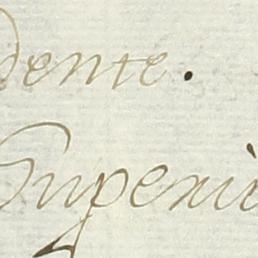 dente.
Superiè